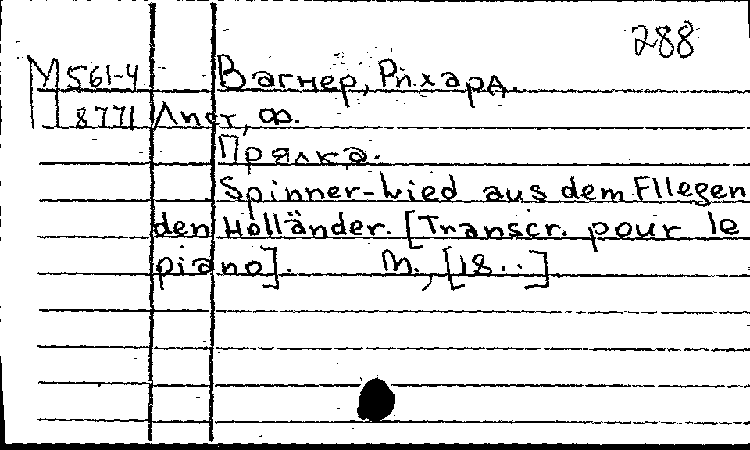 288
М 561-4 Вагнер, Рихард.
8771 Лист, Ф.
Прялка.
Spinner-Lied aus dem Fliegen
den Holländer. [Transcr. pour le
piano]. М., [18..]